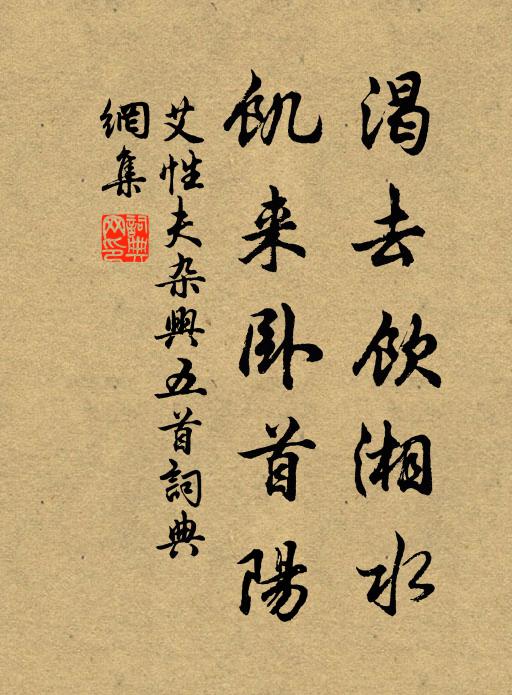 渴去飲湘水
飢来卧首陽
艾性夫杂興五首詞典
網集
詞典網印